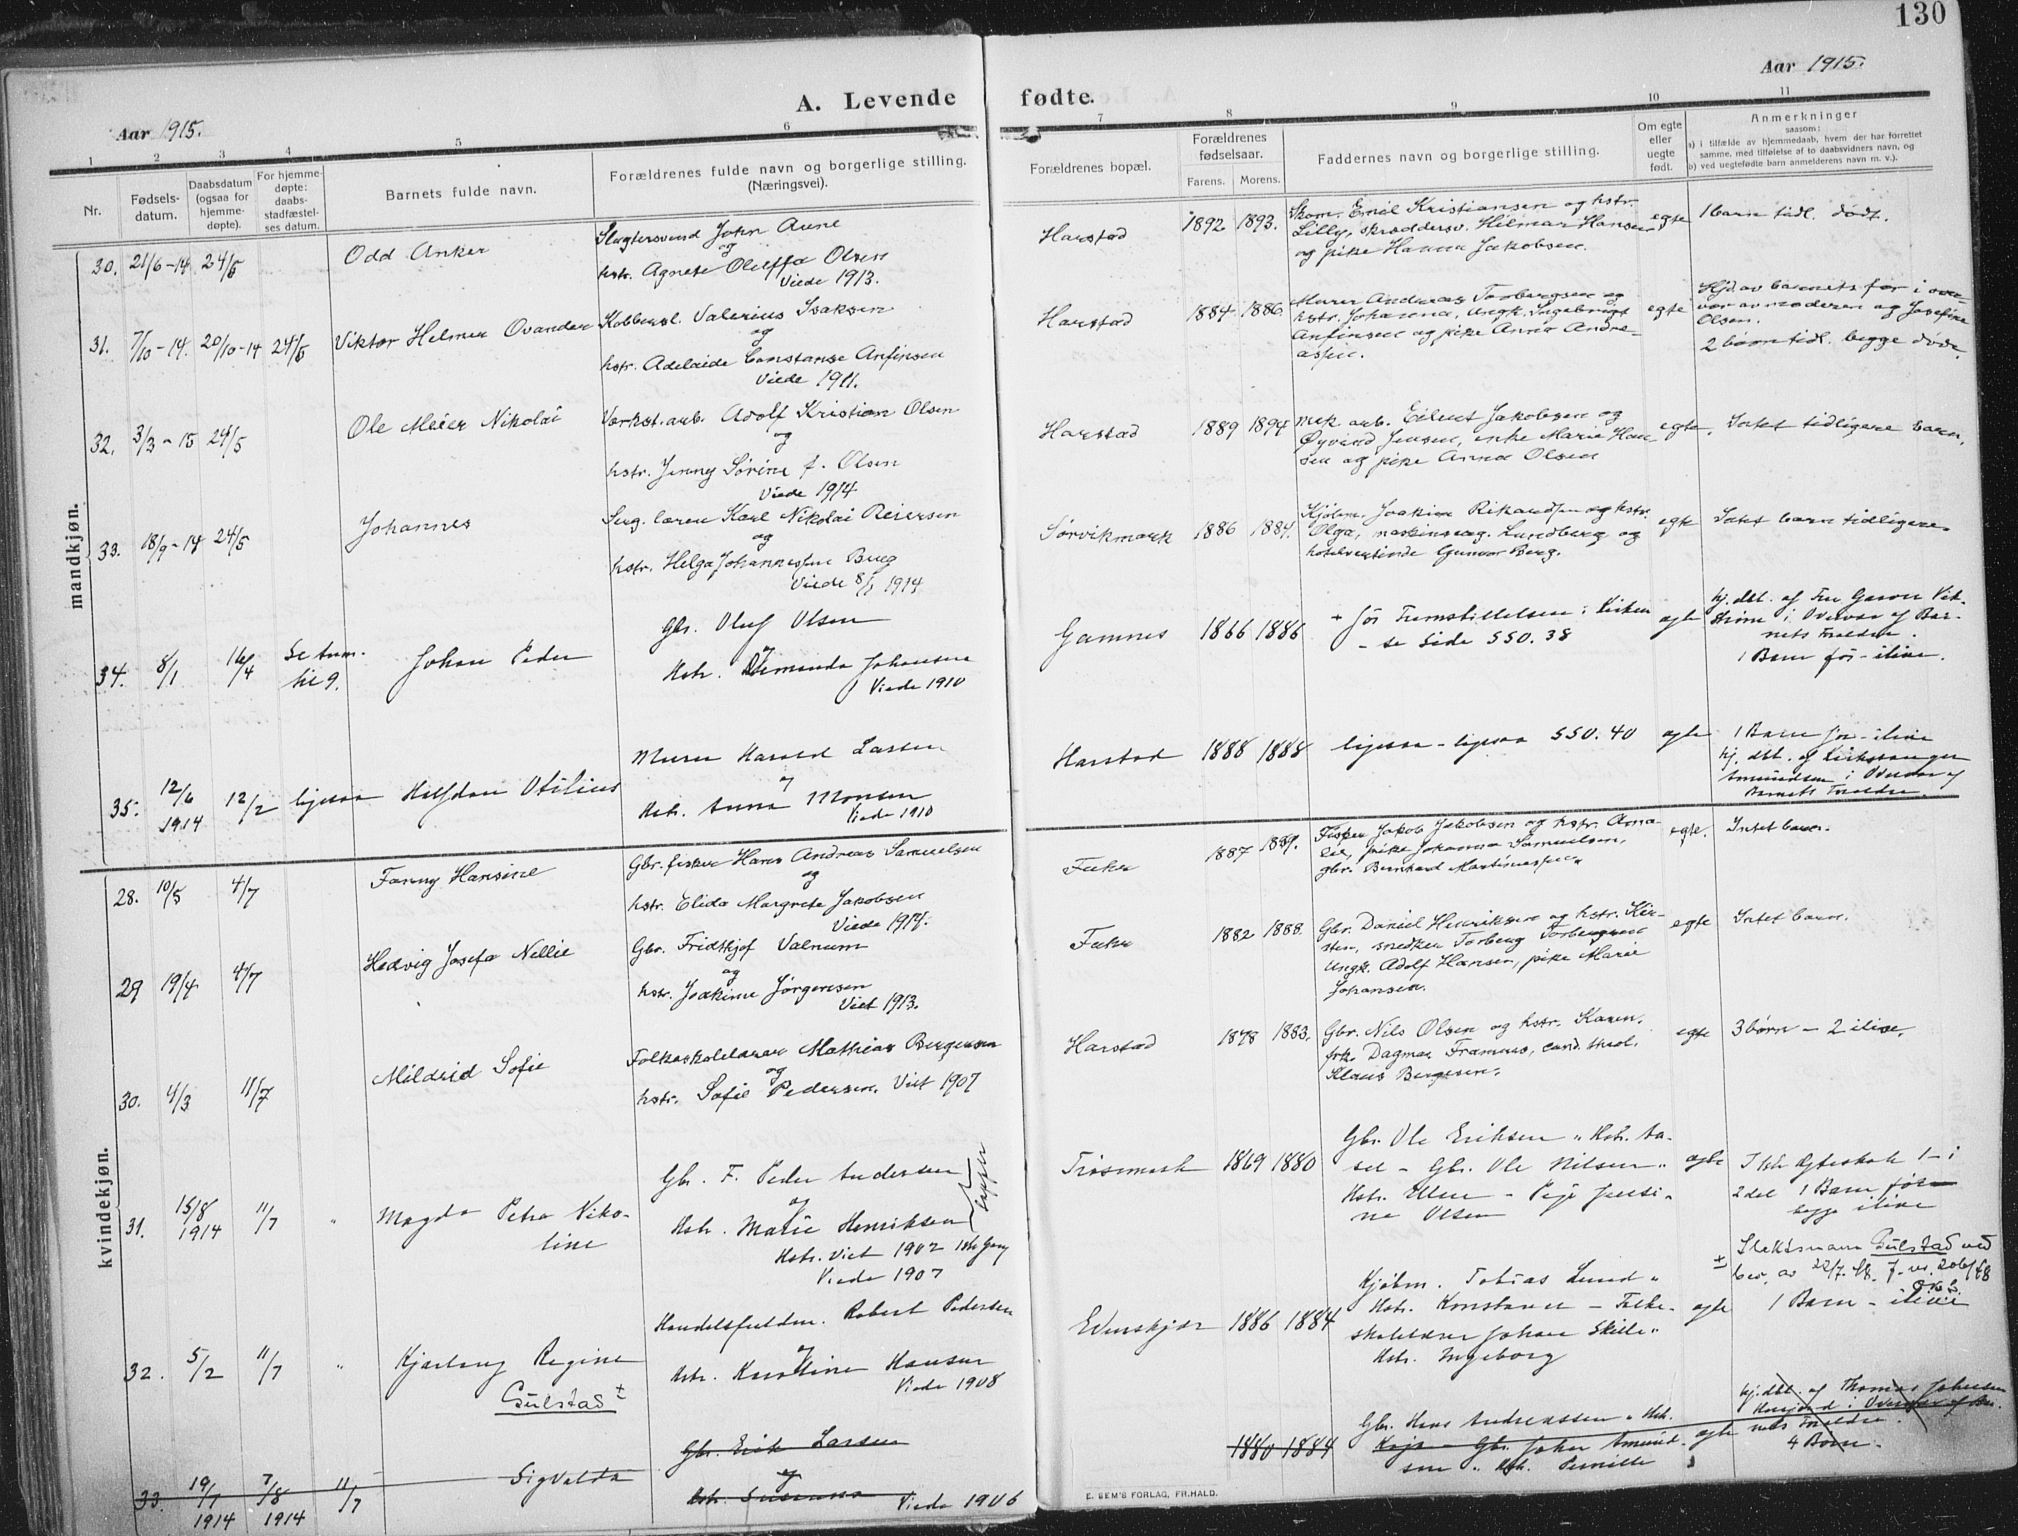 130
Aar 1915.
A. Levende fødte.
Aar 1915.
1 2 3 4 5 6 7 8 9 10 11
Nr.
Fødsels-
datum.
Daabsdatum
(ogsaa for
hjemme-
døpte).
For hjemme-
døpte:
daabs-
stadfæstel-
ses datum.
Barnets fulde navn.
Forældrenes fulde navn og borgerlige stilling.
(Næringsvei).
Forældrenes bopæl.
Forældrenes
fødselsaar.
Farens. Morens.
Faddernes navn og borgerlige stilling.
Om egte
eller
uegte
født.
Anmerkninger
saasom:
a) i tilfælde av hjemmedaab, hvem der har forrettet
samme, med tilføielse af to daabsvidners navn, og
b) ved uegtefødte barn anmelderens navn m. v.).
mandkjøn.
30. 21/6-14 24/5
Odd Anker
Slagtersvend John Aune
og
hstr. Agnete Oleffa Olsen
Viede 1913.
Harstad 1892 1893.
Skom. Emil Kristiansen og hstr.
Lilly, skræddersv. Hilmar Hansen
og pike Hanna Jakobsen.
egte
1 barn tidl. dødt.
31. 7/10-14. 20/10-14 24/5
Viktor Helmer Ovander
Kobbersl. Valerius Isaksen
og
hstr. Adelaide Constanse Anfinsen
Viede 1911.
Harstad 1884 1886.
Murer Andreas Torbergsen og
hstr. Johanna, Ungk. Ingebrigt
Anfinsen og pike Anna Andre-
assen.
egte
Hjd. av barnets far i over-
vær av moderen og Josefine
Olsen.
2 børn tidl. begge døde.
32. 3/3-15 24/5
Ole Meier Nikolai
Verkst. arb. Adolf Kristian Olsen
og
hstr. Jenny Sørine f. Olsen
Viede 1914
Harstad 1889 1894
mek. arb. Eilert Jakobsen og
Øyvind Jensen, enke Marie Han-
sen og pike Anna Olsen
egte.
Intet tidligere barn.
33. 18/9-14 24/5
Johannes
Serg. lærer Karl Nikolai Reiersen
og
hstr. Helga Johannessen Berg
Viede 8/1 1914
Sørvikmark 1886 1884.
Kjøbm. Joakim Rikardsen og hstr.
Olga, maskinsag. Lundberg og
hotelvertinde Gunvor Berg.
egte
Intet barn tidligere.
34. 8/1 16/4
Se Anm.
til 9.
Johan Peder
Gbr. Oluf Olsen
Hstr. Johansen
Viede 1910
Gamnes 1866 1886
+ før Fremstillelsen i Kirken
- se Side 550. 38
egte
hj. dbt. af Fru Vik-
strøm i Overvær af Bar-
nets Foreldre.
1 Barn før - ilive.
35. 12/6 1914 12/2
ligesaa
Halfdan Otilius
Murer Harald Larsen
og
Hstr. Anna Monsen
Viede 1910
Harstad 1888 1888
ligesaa - ligesaa 550. 40
egte
1 Barn før - ilive
hj. dbt. af Kirkesanger
Amundsen i Overvær af
Barnets Foreldre.
kvindekjøn.
28. 10/5 4/7
Fanny Hansine
Gbr. fisker Hans Andreas Samuelsen
og
hstr. Elida Margrete Jakobsen
Viede 1914.
1887 1889.
Fisker Jakob Jakobsen og hstr. Ama-
lie, pike Johanna Samuelsen,
gbr. Bernhard Martinussen
egte.
Intet barn.
29 19/4 4/7
Hedvig Josefa Nellie
Gbr. Fridtjof Valnum
og
hstr. Joakime Jørgensen
Viet 1913.
1882 1888.
Gbr. Daniel Henriksen og hstr. Kir-
sten, snedker Torberg Torbergsen
Ungk. Adolf Hansen, pike Marie
Johansen.
egte
Intet barn.
30. 4/3 11/7
Mildrid Sofie
Folkeskolelærer Mathias Bergersen
og
hstr. Sofie Pedersen. Viet 1907
Harstad 1878 1883.
Gbr. Nils Olsen og hstr. Karen.
frk. Dagmar Framnes, cand. theol.
Klaus Bergesen.
egte
3 børn - 2 ilive.
31. 15/8 1914 11/7 "
Magda Petra Niko-
line
Gbr. F. Peder Andersen
og
Hstr. Marie Henriksen
Lapper
Hstr. Viet 1902 1ste Gang
Viede 1907
1869 1880
Gbr. Ole Eriksen " Hstr. Aa-
sel - Gbr. Ole Nilsen "
Hstr. Ellen - Pige Jensi-
ne Olsen
egte
I 1ste Egteskab 1 - i
2det 1 Barn før
begge ilive
32. 5/2 11/7 "
Kjærlaug Regine
Gulstad ±
Handelsfuldm. Robert Pedersen
og
Hstr. Karoline Hansen
Viede 1908
1886 1884
Kjøbm. Tobias Lund "
Hstr. Konstanse - Folke-
skolelærer Johan Skille "
Hstr. Ingeborg
egte
± Slektsnavn Gulstad ved
bev. av 22/7.
1 Barn - ilive
33. 19/7 1914 7/8 1914 11/7
Sigvalda
Gbr. Erik Larsen
og
Hstr. Susanna
Viede 1906
1880 1884
Gbr. Hans Andreassen " Hstr.
Kaja - Gbr. Johan Amund-
sen " Hstr. Pernille
egte
hj. dbt. af Thomas Johnsen
i Overvær af Bar-
nets Foreldre.
4 Børn -
E. SEM'S FORLAG, FR.HALD.